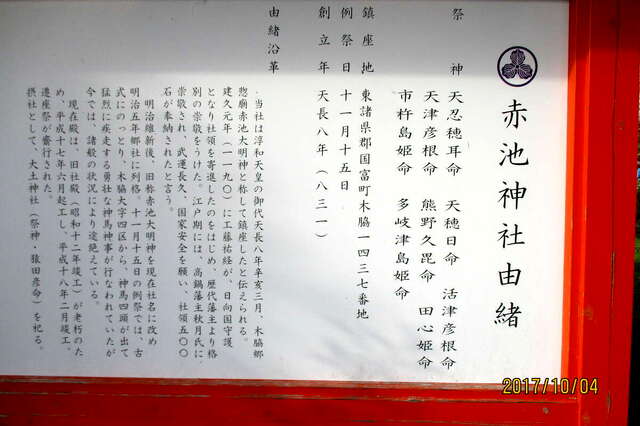 赤池神社由緒
祭神 天忍穂耳命 天穂日命 活津彦根命
天津彦根命 熊野久毘命 田心姫命
市杵島姫命 多岐津島姫命
鎮座地 東諸県郡国富町木脇一四三七番地
例祭日 十一月十五日
創立年 天長八年(八三一)
由緒沿革
当社は淳和天皇の御代天長八年辛亥三月、木脇郷
惣廟赤池大明神と称して鎮座したと伝えられる。
建久元年(一一九〇)に工藤祐経が、日向国守護
となり社領を寄進したのをはじめ、歴代藩主より格
別の崇敬をうけた。江戸期には、高鍋藩主秋月氏に
崇敬され、武運長久、国家安全を願い、社領五〇〇
石が奉納されたと言う。
明治維新後、旧称赤池大明神を現在社名に改め
明治五年郷社に列格。十一月十五日の例祭では、古
式にのっとり、木脇大字四区から、神馬四頭が出て
猛烈に疾走する勇壮な神馬神事が行なわれていたが
今では、諸般の状況により途絶えている。
現在殿は、旧社殿(昭和十二年竣工)が老朽のた
め、平成十七年六月起工し、平成十八年二月竣工、
遷座祭が齋行された。
摂社として、大土神社(祭神・猿田彦命)を祀る。
2017/10/04